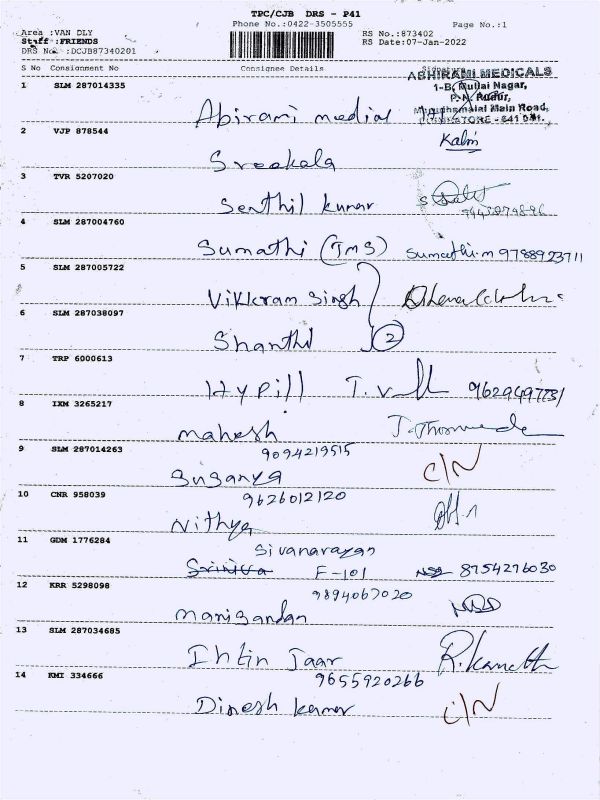 TPC/CJB DRS - P41
Phone No.:0422-3505555
Page No.:1
Area :VAN DLY
Staff :FRIENDS
DRS No. :DCJB87340201
RS No.:873402
RS Date:07-Jan-2022
S No Consignment No Consignee Details Signature
ABHIRAMI MEDICALS
1-B, Mullai Nagar,
P.N. Pudur,
Maruthamalai Main Road,
COIMBATORE - 641 041.
1 SLM 287014335
Abirami medial
2 VJP 878544
Kalni
Sreekala
3 TVR 5207020
Senthil kumar
4 SLM 287004760
Sumathi (TMS) Sumathi.m 9788923711
5 SLM 287005722
Vikkram Singh
6 SLM 287038097
Shanthi 2
7 TRP 6000613
Hypill
8 IXM 3265217
Mahesh
9 SLM 287014263
9094219515
Suganya C/N
10 CNR 958039
9626012120
Nithya
11 GDM 1776284
Sivanarayan
Sriniva F-101 8754276030
12 KRR 5298098
9894067020
Manigandan
13 SLM 287034685
Ihtin Jaar
14 KMI 334666
9655920266
Dinesh kumar C/N